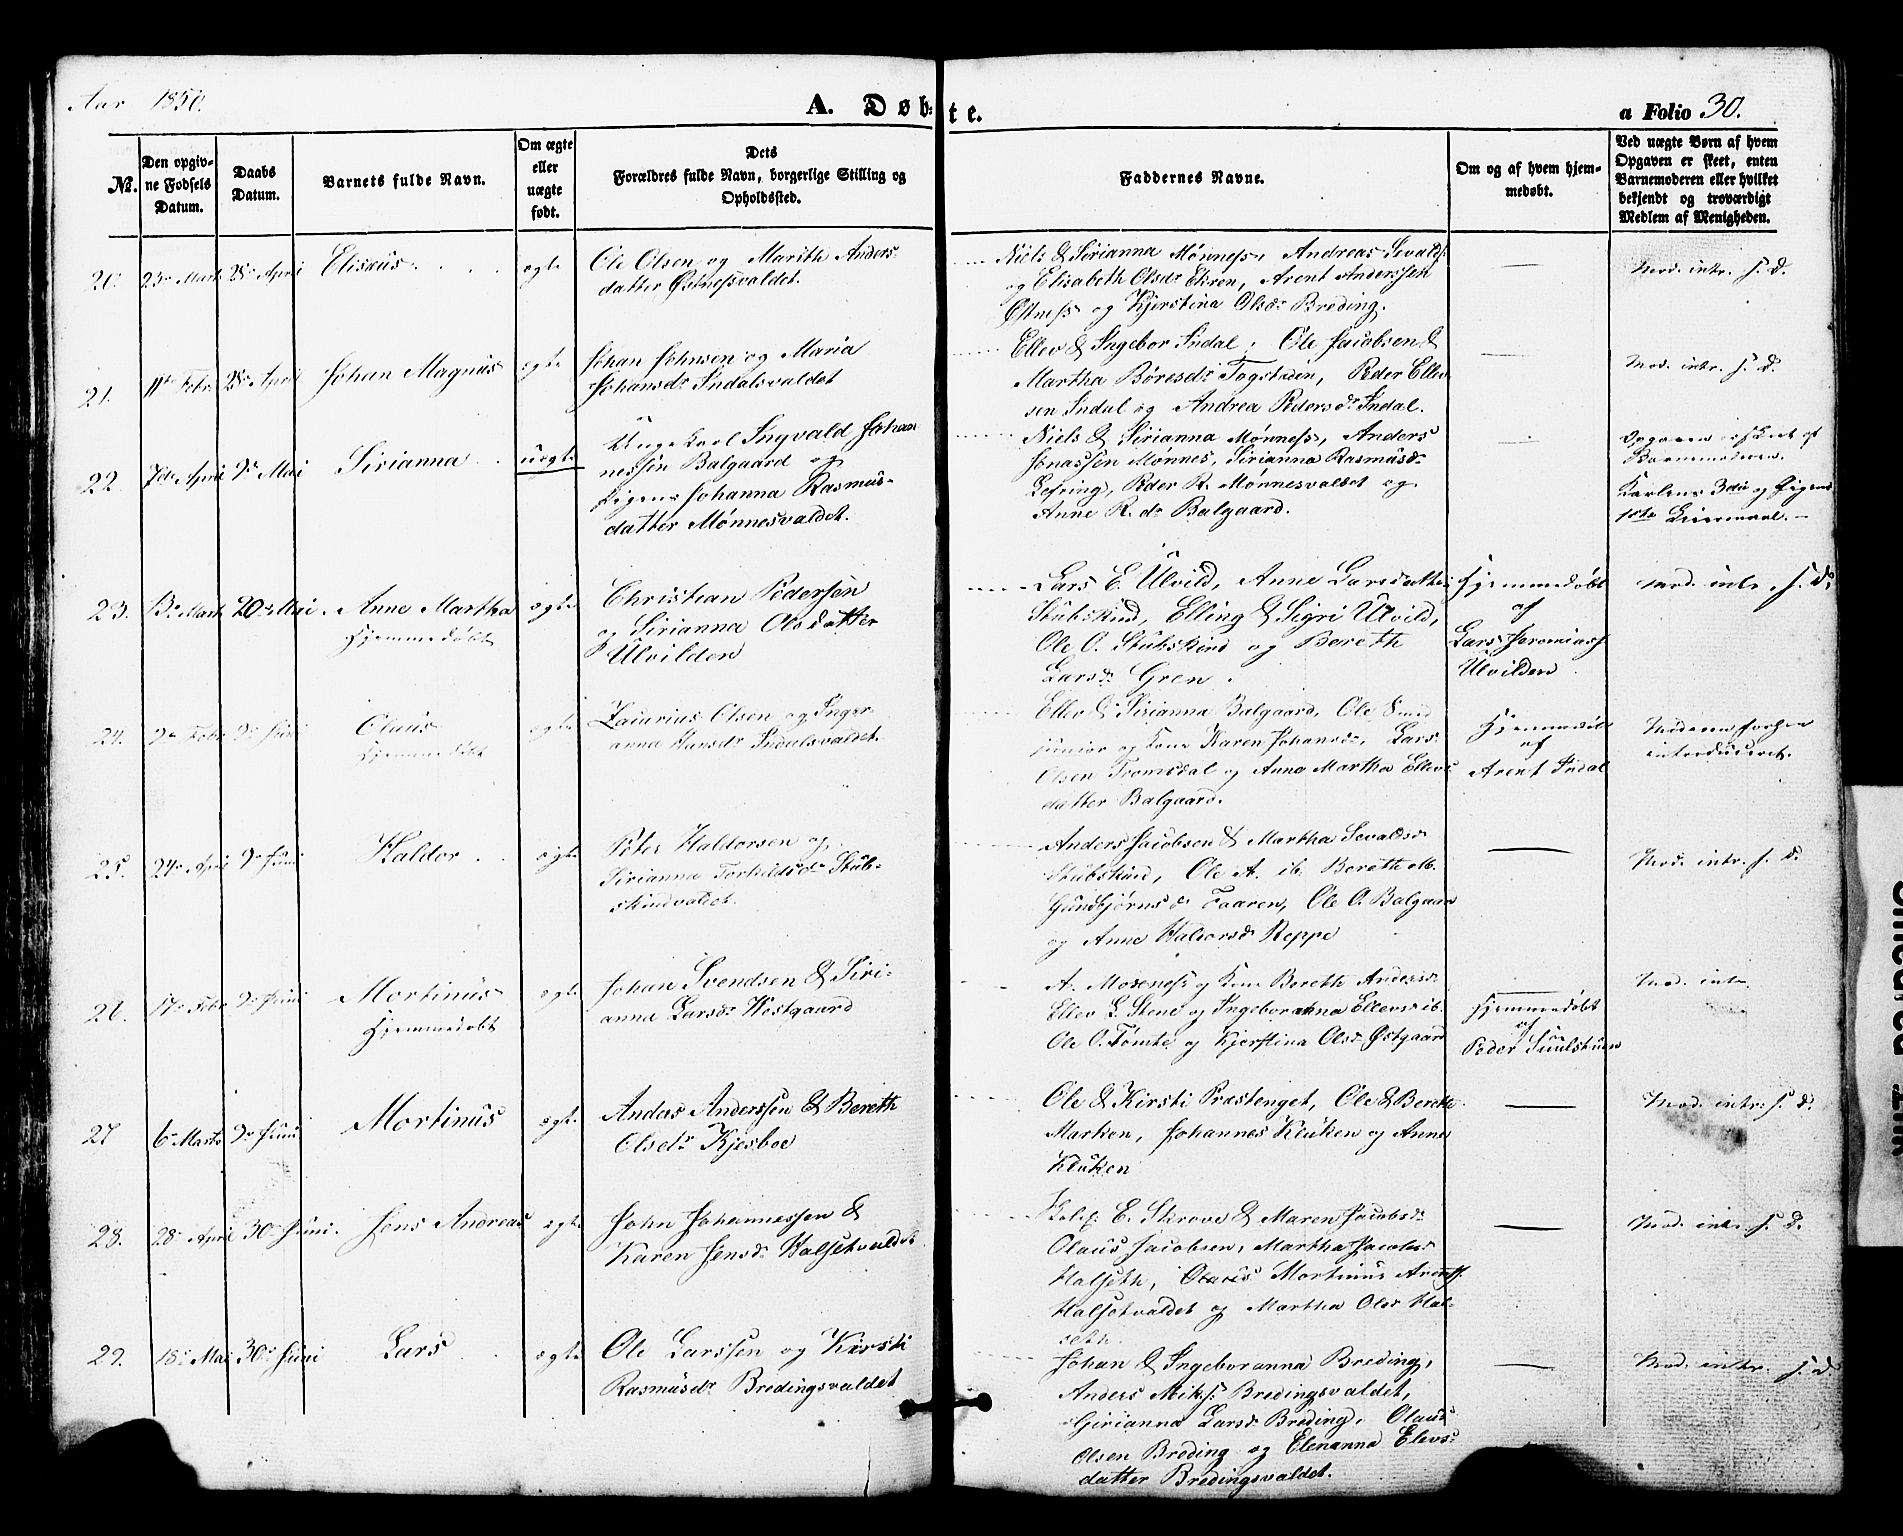 Aar 1850.
A. Døbte.
a Folio 30.
No. Den opgivne Fødsels Datum. Daabs Datum. Barnets fulde Navn. Om ægte eller uægte født. Dets Forældres fulde Navn, borgerlige Stilling og Opholdssted. Faddernes Navne. Om og af hvem hjemmedøbt. Ved uægte Børn af hvem Opgaven er skeet, enten Barnemoderen eller hvilket bekjendt og troværdigt Medlem af Menigheden.
20. 23de Marts 28de April Elisæus ægte Ole Olsen og Marith Anders
datter Østnessvaldet.
Niels & Sirianna Mønness, Andreas Sevalds.
og Elisabeth Olsdr Ekren, Arent Anderssen
Østness og Kjerstina Olsdr Breding.
Mod. intr. s. d.
21. 11te Febr 28de April Johan Magnus ægte Johan Johnsen og Maria
Johansdr Indalsvaldet
Ellev & Ingebor Indal, Ole Jacobsen &
Martha Børesdr Togstaden, Peder Ellev
sen Indal og Andrea Pedersdr Indal.
Mod. intr. s. d.
22. 7de April 9de Mai Sirianna uægte Ungekarl Ingvald Johan
nessen Balgaard og
Pigen Johanna Rasmus-
datter Mønnesvaldet.
Niels & Sirianna Mønness, Anders
Jonassen Mønnes, Sirianna Rasmusdr
Lefring, Peder R. Mønnesvaldet og
Anne R. dr Balgaard.
Opgaven er skeet af
Barnemoderen.
Karlens 3die og Pigens
1ste Leiermaal. -
23. 13de Marts 20de Mai. Anne Martha
Hjemmedøbt
ægte Christian Pedersen
og Sirianna Olsdatter
Ulvilden
Lars E. Ulvild, Anne Larsdatter
Stubskind, Elling & Sigri Ulvild,
Ole O. Stubskind og Bereth
Larsdr Gren.
Hjemmedøbt
af
Lars Jeremiass
Ulvilden
Mod. intr. s. d.
24. 9de Febr 9de Juni Olaus
Hjemmedøbt
ægte Zacarias Olsen og Inger
anna Hansdr Indalsvaldet.
Ellev & Sirianna Balgaard, Ole
junior og Kone Karen Johansdr, Lars
Olsen Tromsdal og Anne Martha Ellevs
datter Balgaard.
Hjemmedøbt
af
Arent Indal
Moderen forhen
introduceret.
25. 24de April 9de Juni Haldor ægte Peter Haldorsen og
Sirianna Torkildsdr Stub-
skindvaldet.
Anders Jacobsen & Martha Sevaldsdr
Stubskind, Ole A. ib. Bereth
Gundbjørnsdr Faaren, Ole O. Balgaard
og Anne Haldorsdr Reppe
Mod. intr. s. d.
26. 17de Febr 9de Juni Mortinus
Hjemmedøbt
ægte Johan Svendsen & Siri-
anna Larsdr Vestgaard
A. Moseness og Kone Bereth Andersdr
Ellev L. Stene og Ingeboranna Ellevsdr ib.
Ole O. Tømte og Kjerstina Olsdr Østgaard
Hjemmedøbt
af
Peder Suulstuen
Mod. intr.
27 6te Marts 9de Juni Mortinus ægte Anders Anderssen & Bereth
Olsedr Kjesboe
Ole & Kirsti Præstenget, Ole & Bereth
Marken, Johannes Kluken og Anne
Kluken
Mod. intr. s. d.
28. 28de April 30te Juni. Jens Andreas ægte John Johannessen &
Karen Jensdr Halsetvaldet
E. Skrove & Maren Jacobsdr
Olaus Jacobsen, Martha Jacobsdr
Halseth, Olaus Mortinus Arentss.
Halsetvaldet og Martha Olsdr Hal-
seth.
Mod. intr. s. d.
29. 18de Mai 30te Juni Lars ægte Ole Larssen og Kirsti
Rasmusdr Bredingsvaldet
Johan & Ingeboranna Breding,
Anders Miks. Bredingsvaldet,
Girianna Larsdr Breding, Olaus
Olsen Breding og Elenanna Elevs-
datter Bredingsvaldet.
Mod. intr. s. d.